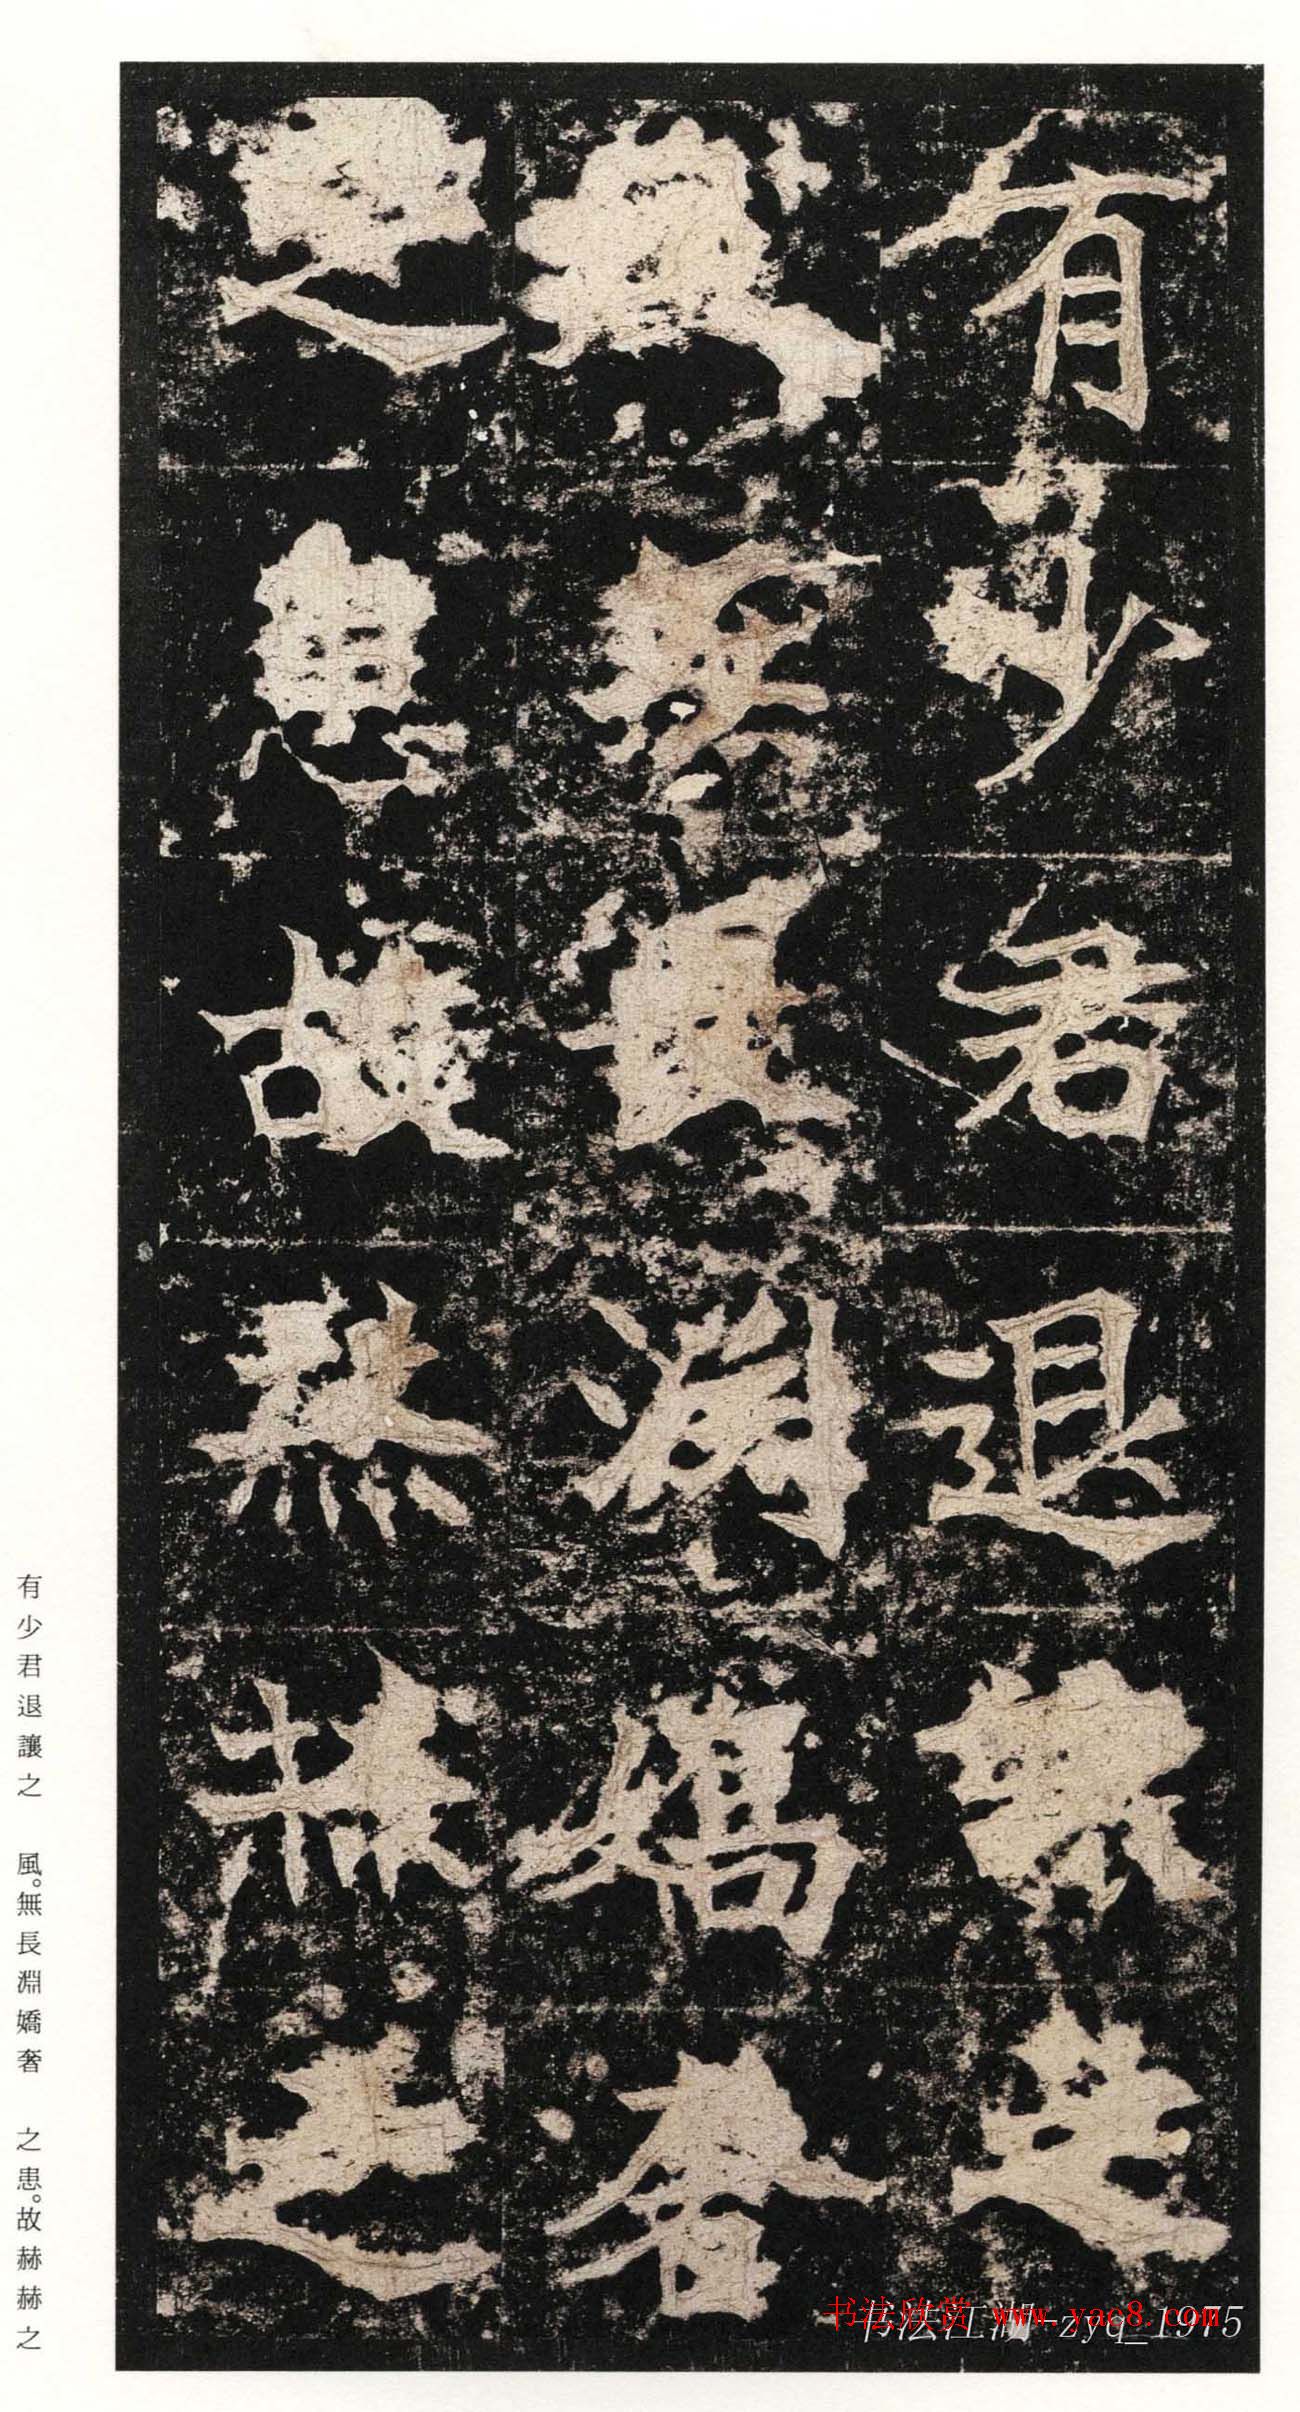 有少君退讓之
風無長淵嬌奢
之患故赫赫之
有少君退讓之　風。無長淵嬌奢　之患。故赫赫之
书法欣赏 www.yac8.com
书法江湖-zyq_1975